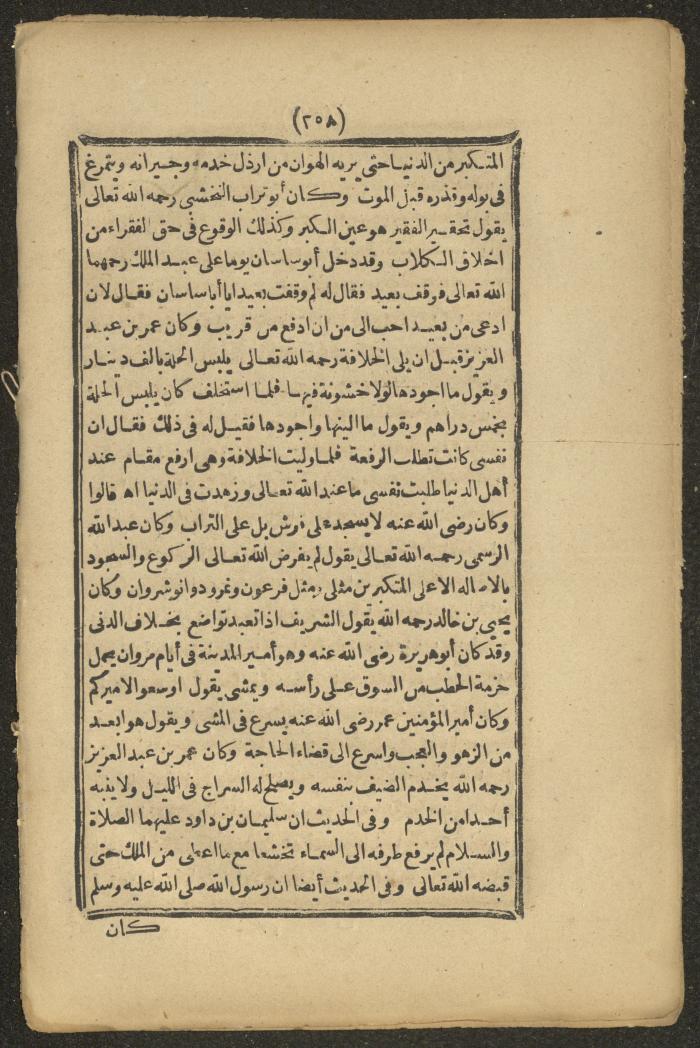 (٢٥٨)
المتكبر من الدنيا حتى يريه الهوان من ارذل خدمه وجيرانه ويتمرغ
فى بوله وقذره قبل الموت وكان أبو تراب النخشبى رحمه الله تعالى
يقول تحقير الفقير هو عين الكبر وكذلك الوقوع فى حق الفقراء من
اخلاق الكلاب وقد دخل أبو ساسان يوما على عبد الملك رحمهما
الله تعالى فوقف بعيد فقال له لم وقفت بعيد ايا أبا ساسان فقال لان
ادعى من بعيد احب الى من ان ادفع من قريب وكان عمر بن عبد
العزيز قبل ان يلى الخلافة رحمه الله تعالى يلبس الحلة بالف دينار
ويقول ما اجودها لولا خشونة فيها فلما استخلف كان يلبس الحلة
بخمس دراهم ويقول ما الينها واجودها فقيل له فى ذلك فقال ان
نفسى كانت تطلب الرفعة فلما وليت الخلافة وهى ارفع مقام عند
أهل الدنيا طلبت نفسى ما عند الله تعالى وزهدت فى الدنيا اه قالوا
وكان رضى الله عنه لا يسجد على فرش بل على التراب وكان عبد الله
الرسمى رحمه الله تعالى يقول لم يفرض الله تعالى الركوع والسجود
بالاصاله الا على المتكبرين مثلى مثل فرعون ونمرود وانوشروان وكان
يحيى بن خالد رحمه الله يقول الشريف اذا تعبد تواضع بخلاف الدنى
وقد كان أبو هريرة رضى الله عنه وهو أمير المدينة فى أيام مروان يحمل
حزمة الحطب من السوق على رأسه ويمشى يقول اوسعوا لاميركم
وكان أمير المؤمنين عمر رضى الله عنه يسرع فى المشى ويقول هو ابعد
من الزهو والعجب واسرع الى قضاء الحاجة وكان عمر بن عبد العزيز
رحمه الله يخدم الضيف بنفسه ويصلح له السراج فى الليل ولا ينبه
أحدا من الخدم وفى الحديث ان سليمان بن داود عليهما الصلاة
والسلام لم يرفع طرفه الى السماء تخشعا مع ما اعطى من الملك حتى
قبضه الله تعالى وفى الحديث أيضا ان رسول الله صلى الله عليه وسلم
كان